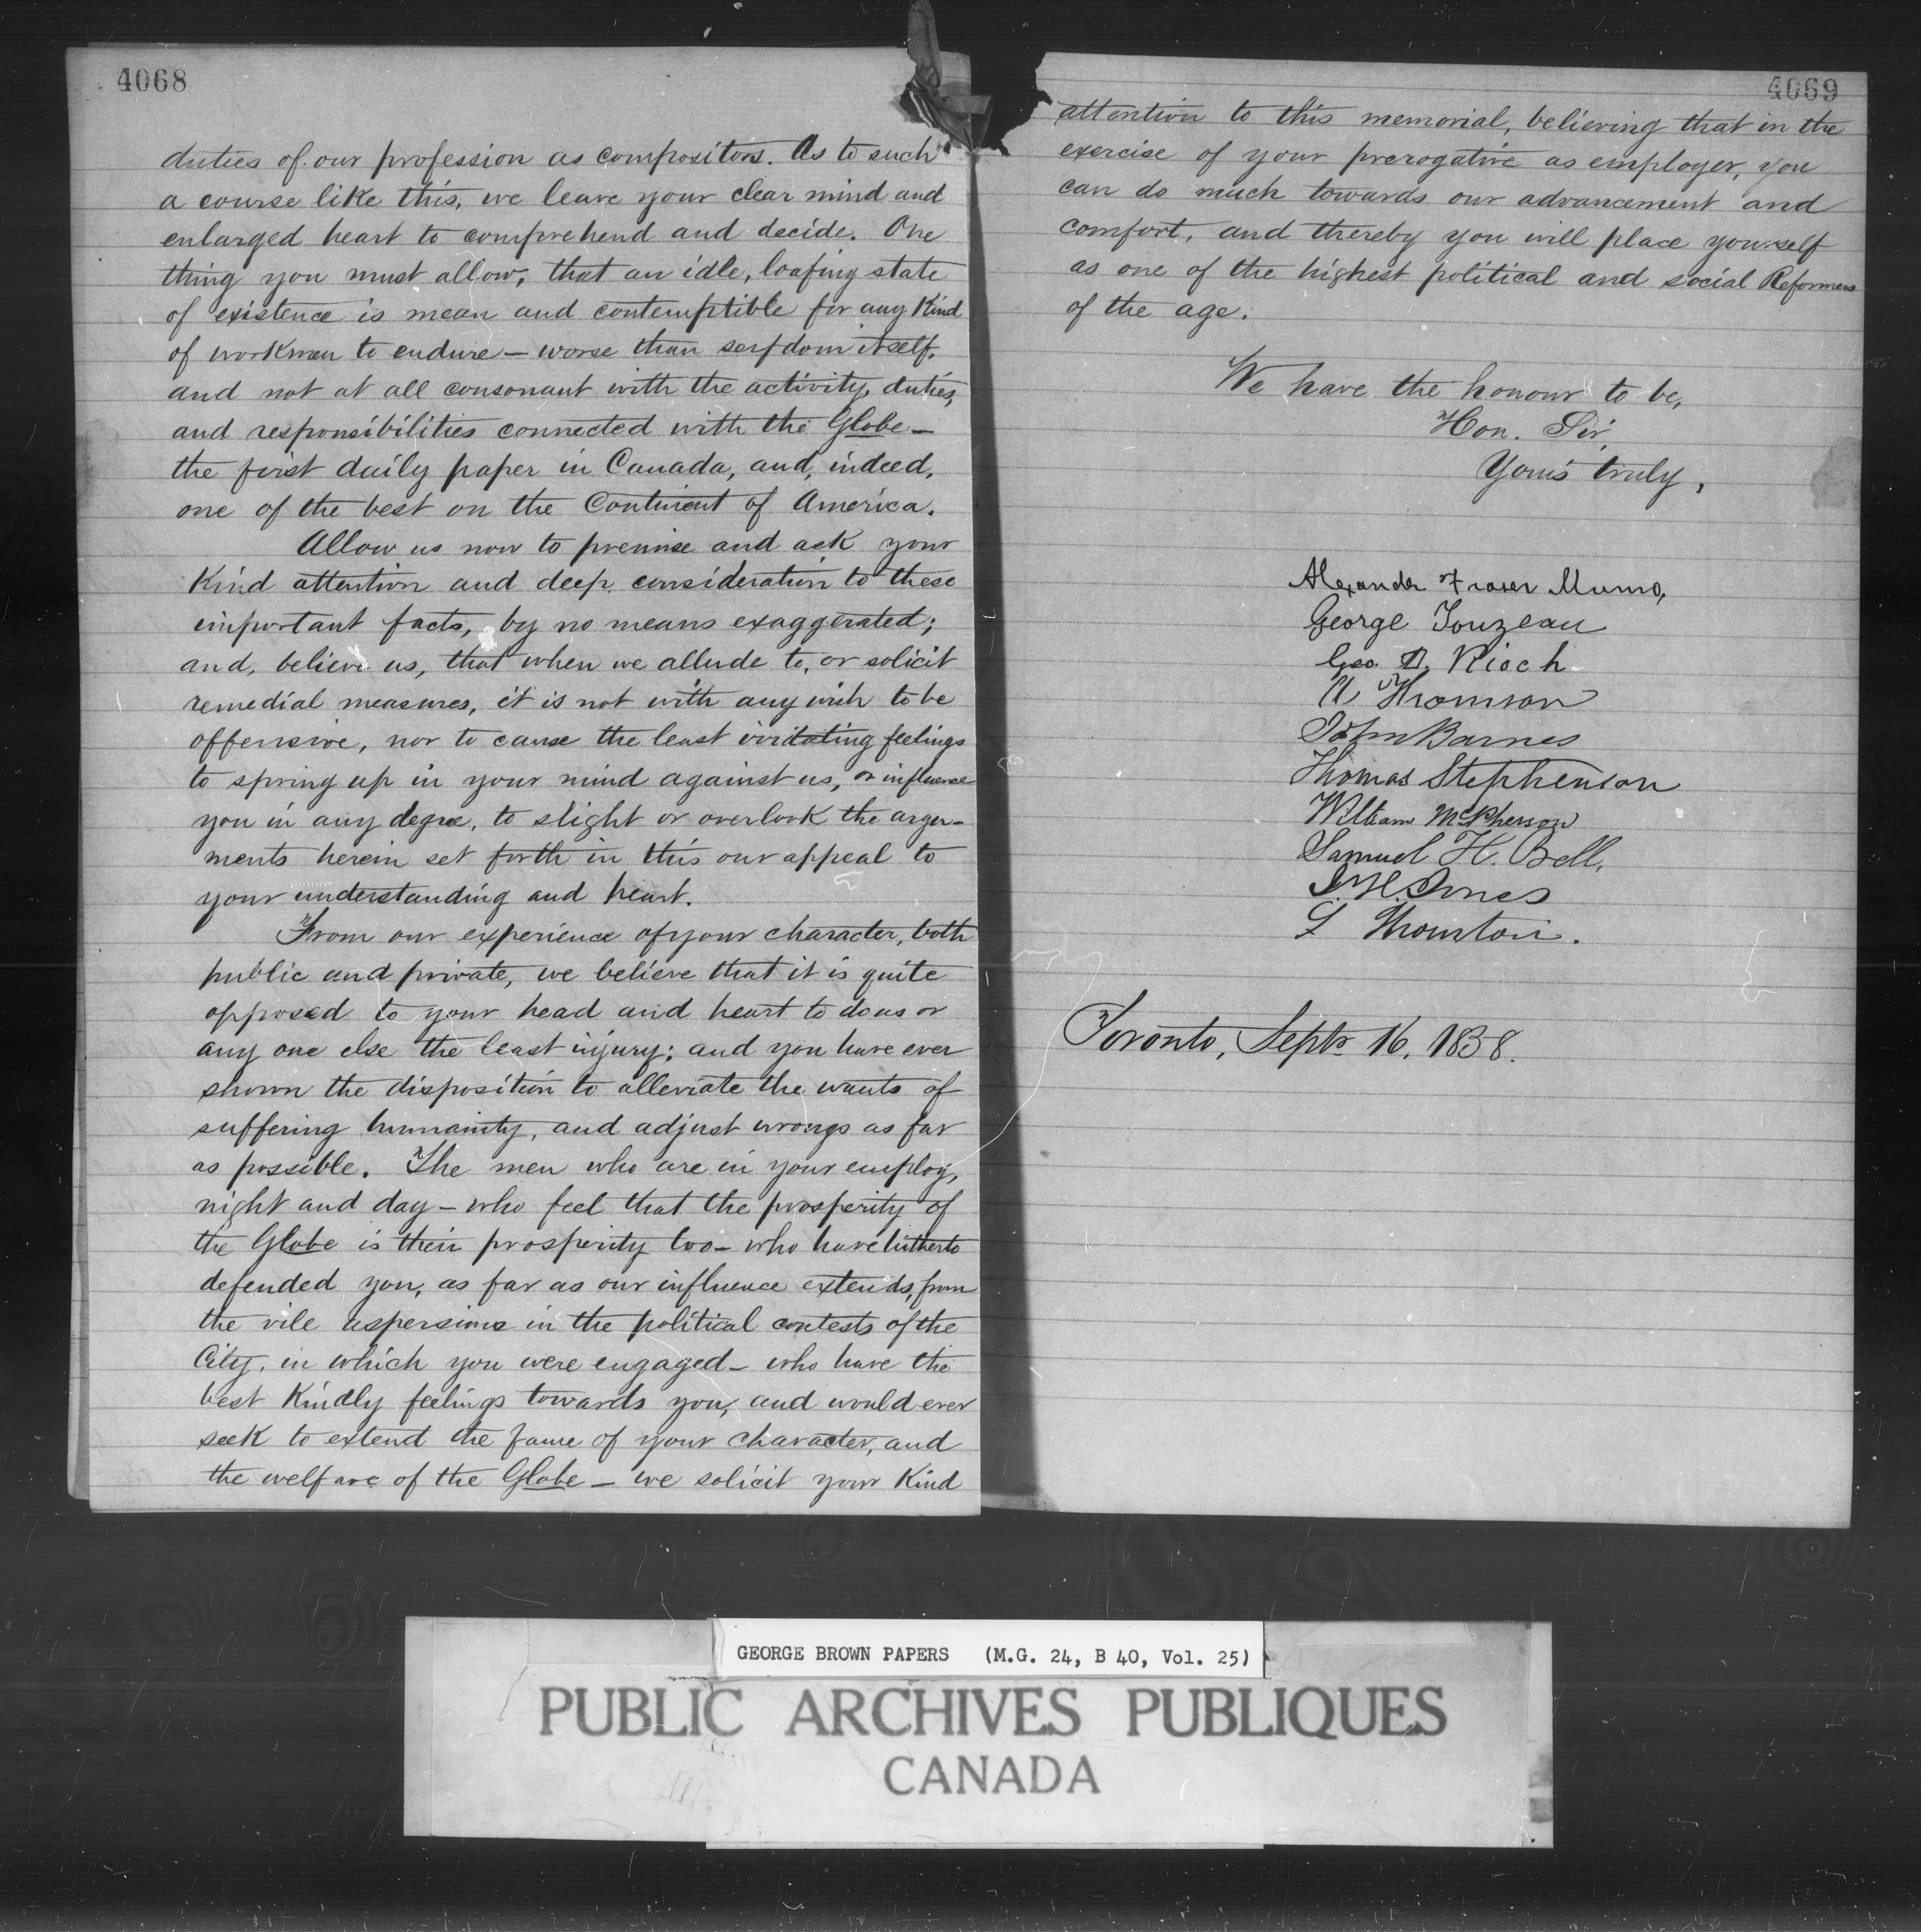 4068
duties of our profession as compositors. As to such
a course like this, we leave your clear mind and
enlarged heart to comprehend and decide. One
thing you must allow, that an idle, loafing state
of existence is mean and contemptible for any Kind
of workmen to endure — worse than serfdom itself,
and not at all consonant with the activity, duties,
and responsibilities connected with the Globe —
the first daily paper in Canada, and, indeed,
one of the best on the Continent of America.
Allow us now to premise and ask your
Kind attention and deep consideration to these
important facts, by no means exaggerated;
and, believe us, that when we allude to, or solicit
remedial measures, it is not with any wish to be
offensive, nor to cause the least irritating feelings
to spring up in your mind against us, or influence
you in any degree, to slight or overlook the argu-
ments herein set forth in this our appeal to
your understanding and heart.
From our experience of your character, both
public and private, we believe that it is quite
opposed to your head and heart to do us or
any one else the least injury; and you have ever
shown the disposition to alleviate the wants of
suffering humanity, and adjust wrongs as far
as possible. The men who are in your employ,
night and day — who feel that the prosperity of
the Globe is their prosperity too — who have hitherto
defended you, as far as our influence extends, from
the vile aspersions in the political contests of the
City, in which you were engaged — who have the
best Kindly feelings towards you, and would ever
seek to extend the fame of your character, and
the welfare of the Globe — we solicit your Kind
4069
attention to this memorial, believing that in the
exercise of your prerogative as employer, you
can do much towards our advancement and
comfort, and thereby you will place yourself
as one of the highest political and social Reformers
of the age.
We have the honour to be,
Hon. Sir,
Yours truly,
Alexander Fraser Munro,
George Touzeau
Geo. D. Rioch.
A Thomson
John Barnes
Thomas Stephenson
William McPherson
Samuel H. Bell,
J. H. Jones
Toronto, Septr 16, 1858.
GEORGE BROWN PAPERS (M.G. 24, B 40, Vol. 25)
PUBLIC ARCHIVES PUBLIQUES
CANADA